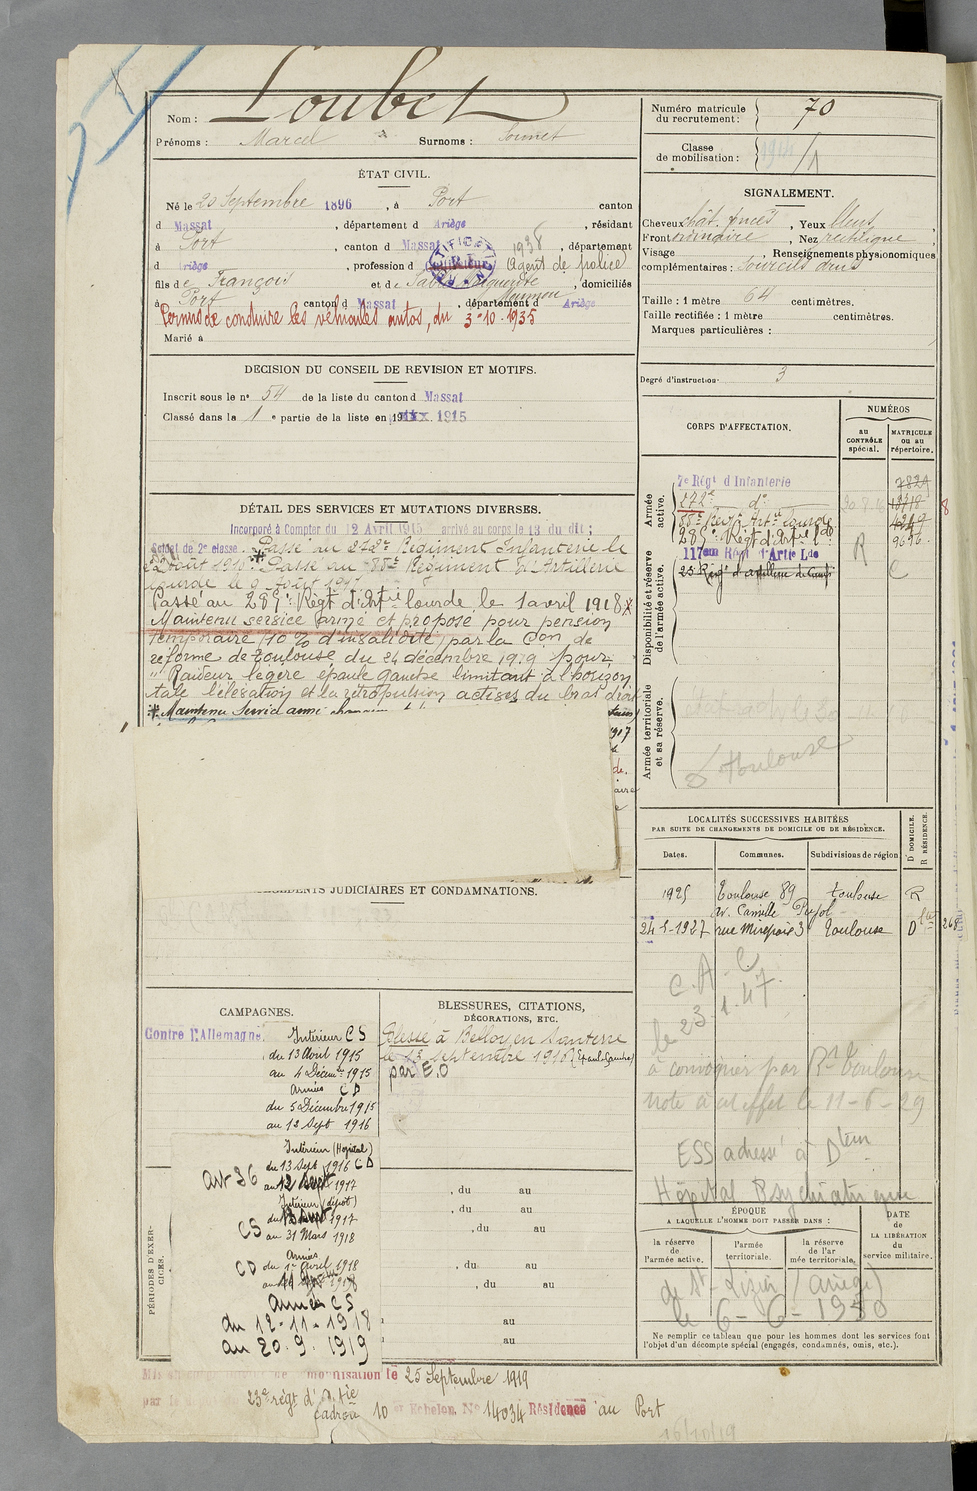 Loubet
Nom :
Prénoms : Marcel Surnoms :
Numéro matricule
du recrutement : 70
Classe
de mobilisation :
ÉTAT CIVIL.
Né le 20 Septembre 1896, à Port canton
d Massat, département d Ariège, résidant
à Port, canton d Massat 1938, département
d Ariège, profession d Agent de police
fils de François et de, domiciliés
à Port canton d Massat, département d Ariège
Permis de conduire les véhicules autos, du 3-10-1935
Marié à
SIGNALEMENT.
Cheveux chât. foncés, Yeux bleus,
Front ordinaire, Nez rectiligne
Visage, Renseignements physionomiques
complémentaires : Sourcils drus
Taille : 1 mètre 64 centimètres.
Taille rectifiée : 1 mètre centimètres.
Marques particulières :
Degré d'instruction 3
DECISION DU CONSEIL DE REVISION ET MOTIFS.
Inscrit sous le n° 54 de la liste du canton d Massat
Classé dans la 1e partie de la liste en 1915
DÉTAIL DES SERVICES ET MUTATIONS DIVERSES.
Incorporé à Compter du 12 Avril 1915 arrivé au corps le 13 du dit ;
Soldat de 2e classe. Passé au 272e Régiment Infanterie le
Août 1916. Passé au 85e Régiment d'Artillerie
lourde le 9 Août 1917
Passé au 289e Régt d'Artie lourde, le 1 avril 1918
Maintenu service armé et proposé pour pension
temporaire 10 % d'invalidité par la Con de
réforme de Toulouse du 24 décembre 1919 pour
"Raideur légère épaule gauche limitant à l'horizon
tale l'élévation et la rétropulsion actives du bras droit
Maintenu Service armé
CORPS D'AFFECTATION.
NUMÉROS
au
CONTRÔLE
spécial.
MATRICULE
ou au
répertoire.
Armée
active.
7e Régt d'Infanterie 7829
272e d°
85e Régt Artie lourde
289e Régt d'Artie lde R 9696
Disponibilité et réserve
de l'armée active.
117em Régt d'Artie Lde
23e Régt d'artillerie de Camp
Armée territoriale
et sa réserve.
Toulouse
LOCALITÉS SUCCESSIVES HABITÉES
PAR SUITE DE CHANGEMENTS DE DOMICILE OU DE RÉSIDENCE.
Dates. Communes. Subdivisions de région D DOMICILE. R RÉSIDENCE.
1925 Toulouse 89 Toulouse R
av. Camille Pujol
24-5-1927 rue Mirepoix 3 Toulouse D
C.A.C
le 23.1.47
à convoquer par Rt Toulouse
Note à cet effet le 11-6-29
ESS adressé à Dteur
Hôpital Psychiatrique
de St-Lizier (Ariège)
le 6-6-1950
JUDICIAIRES ET CONDAMNATIONS.
CAMPAGNES.
Contre l'Allemagne.
Intérieur CS
du 13 Avril 1915
au 4 Décembre 1915
Armées CD
du 5 Décembre 1915
au 12 Sept 1916
Intérieur (Hôpital)
du 13 Sept 1916 CD
art 36
1917
Intérieur (dépôt)
1917
CS
au 31 Mars 1918
Armées
CD du 1er Avril 1918
1918
Armées CS
du 12-11-1918
au 20.9.1919
BLESSURES, CITATIONS,
DÉCORATIONS, ETC.
Blessé à Belloy en Santerre
le 13 septembre 1916 (Epaule Gauche)
par E.O
PÉRIODES D'EXER-
CICES.
, du au
, du au
, du au
, du au
, du au
au
au
ÉPOQUE
A LAQUELLE L'HOMME DOIT PASSER DANS :
la réserve
de
l'armée active.
l'armée
territoriale.
la réserve
de l'ar
mée territoriale.
DATE
de
LA LIBÉRATION
du
service militaire.
Ne remplir ce tableau que pour les hommes dont les services font
l'objet d'un décompte spécial (engagés, condamnés, omis, etc.).
le 25 Septembre 1919
23e régt d'Artie
10 Echelon N° 14034 Résidence au Port
16/10/19